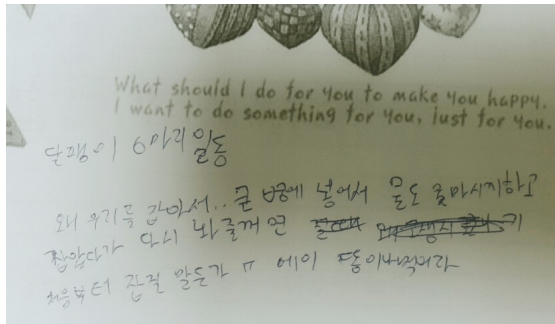 What should I do for you to make you happy.
I want to do something for you, just for you.
단팽이 6마리 일동
왜 우리를 잡아서.. 큰 병에 넣어서 물도 못마시지하고
잡았다가 다시 놔줄꺼면
처음부터 잡질 말든가 ㅠ 에이 똥이나먹어라